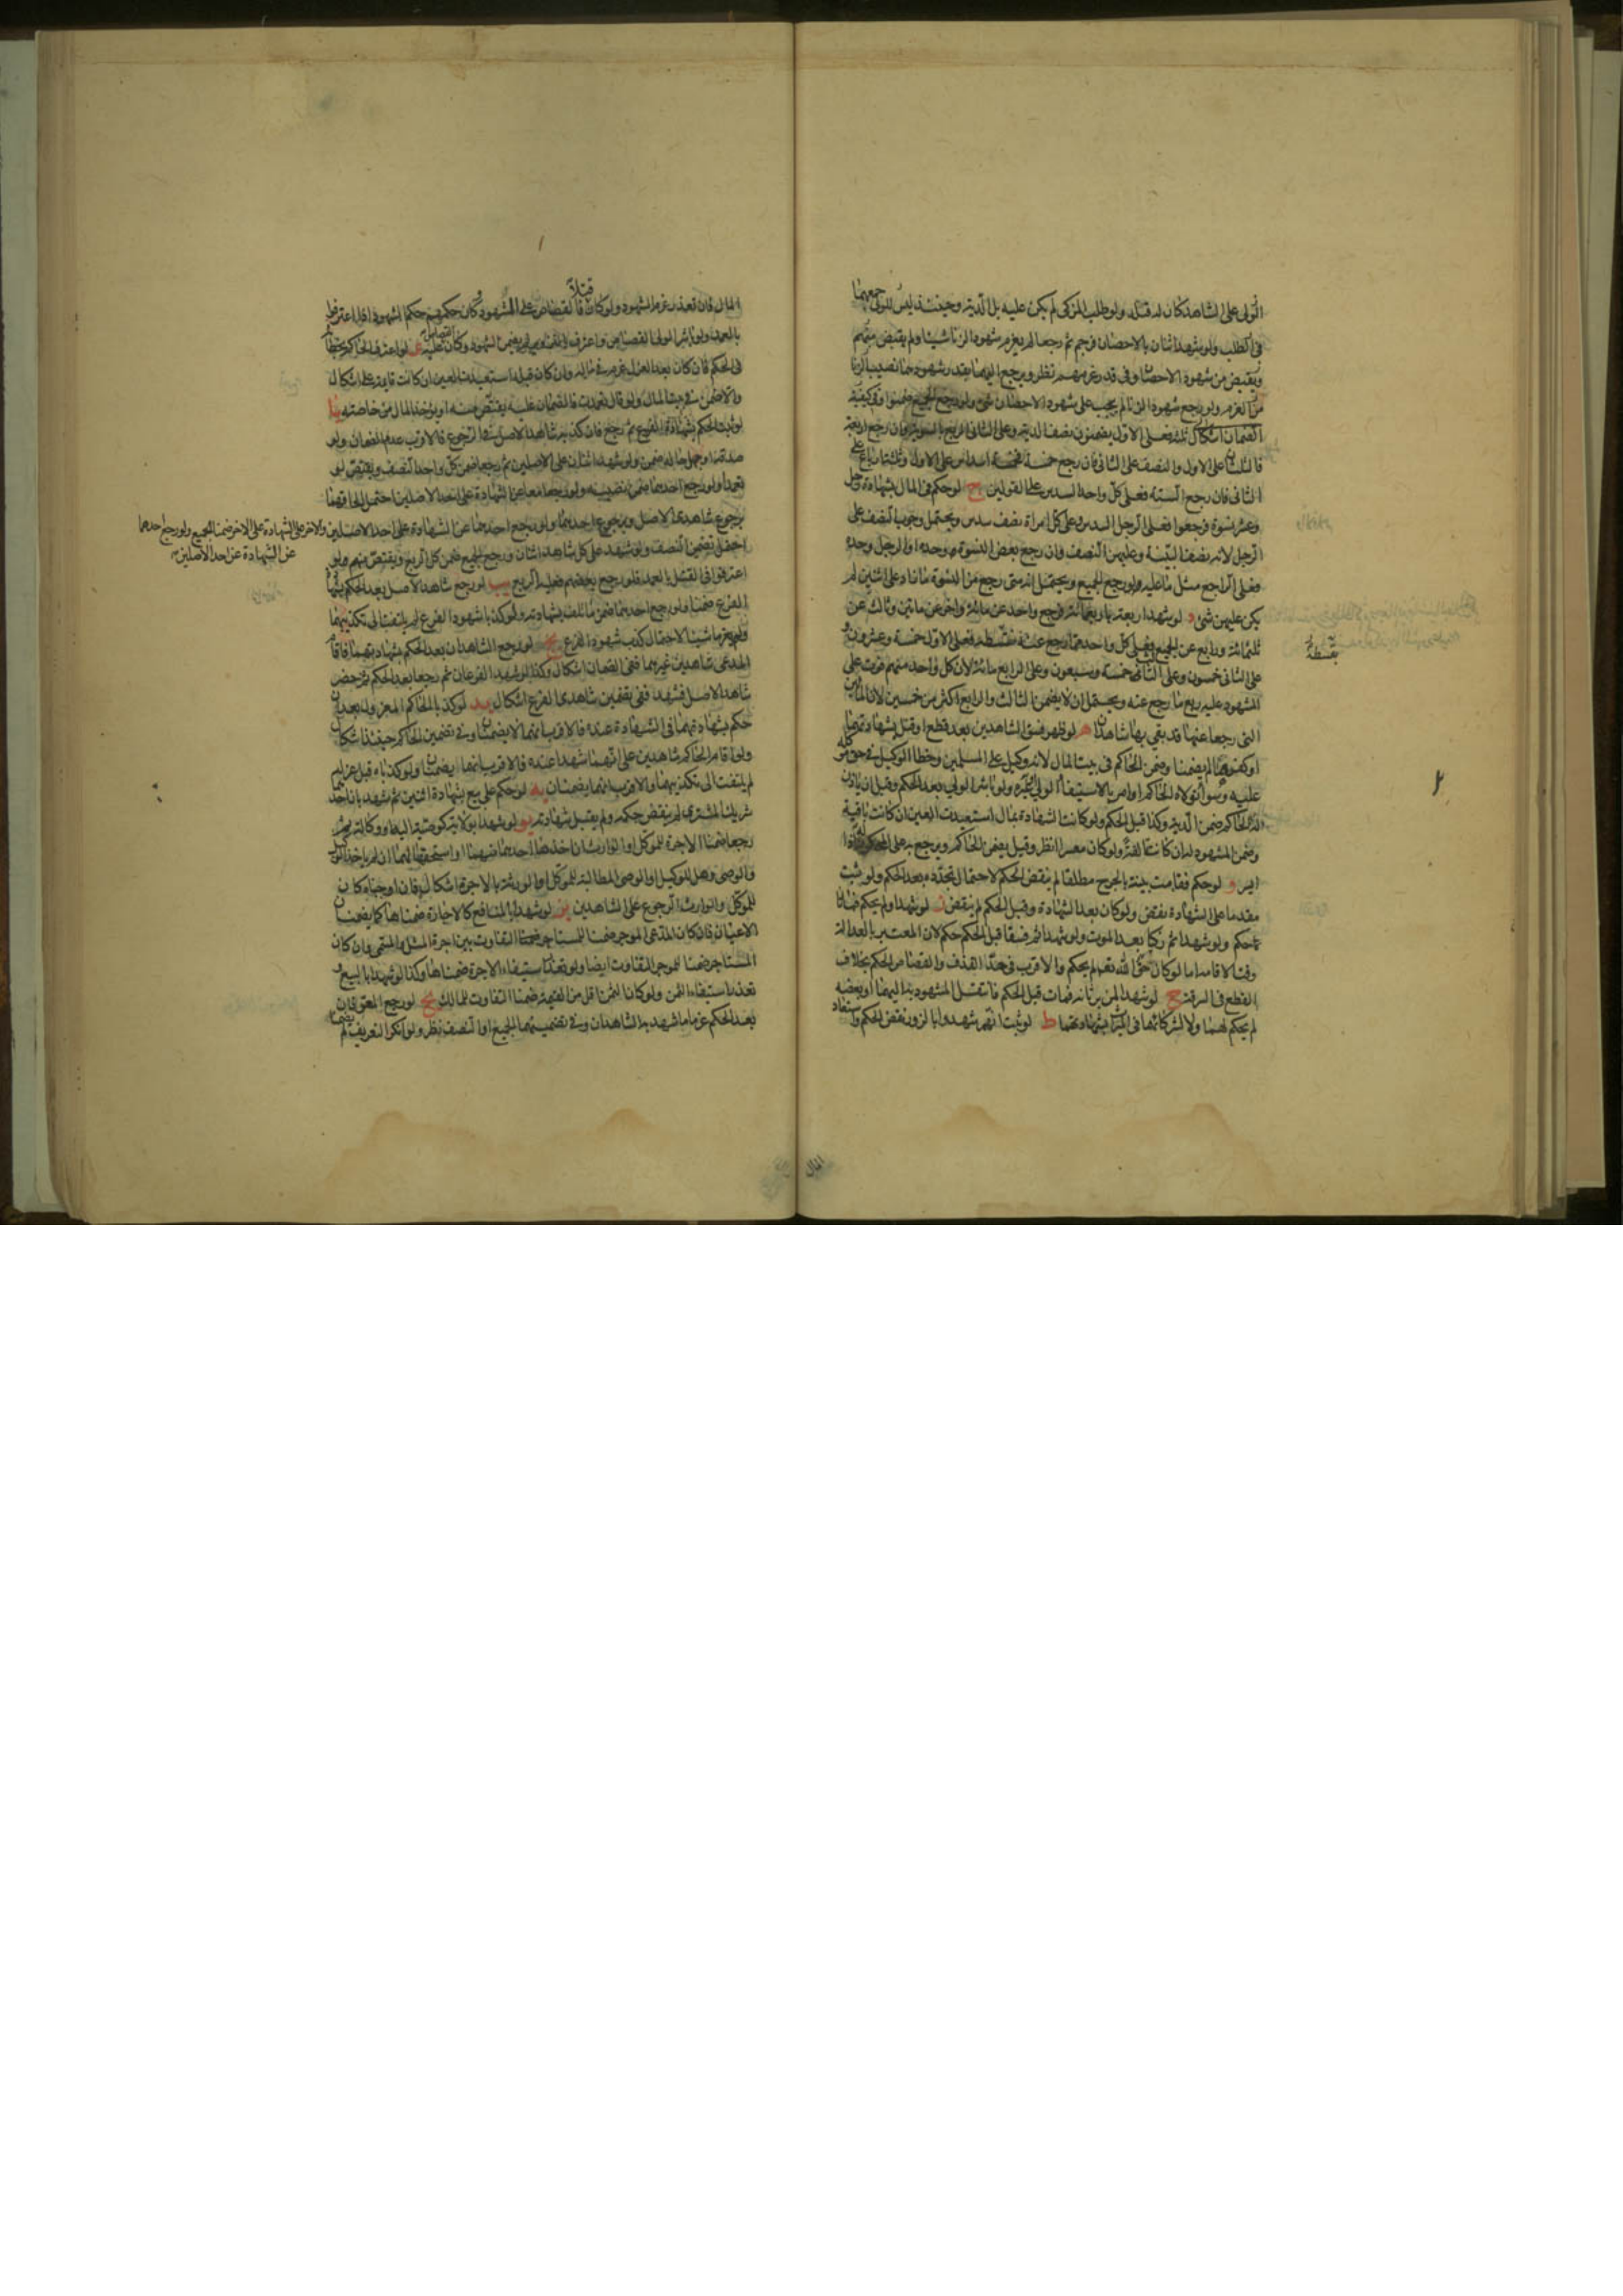 الولى على الشاهد كان له قتله ولو طلب المزكى لم يكن عليه بل الدية وحينئذ ليس للولى جمعهما
فى الطلب ولو شهد اثنان بالاحصان فرجم ثم رجعا لم يغرم شهود الزنا شيئا ولم يقتض منهم
ويقتض من شهود الاحصان وفى قدر غرمهم نظر ويرجع اليهما بقدر شهود هنا نصيب الزنا
من الغرم ولو رجع شهود الزنا لم يجب على شهود الاحصان شئ ولو رجع الجميع ضمنوا وفى كيفية
الضمان اشكال فعلى الاول يضمنون نصف الدية وعلى الثانى الربع بالسوية فان رجع اربعة
فالثلثان على الاول والنصف على الثانى فان رجع خمسة فخمسة اسداس على الاول وثلثة ارباع على
الثانى فان رجع الستة فعلى كل واحد السدس على القولين ج لو حكم فى المال بشهادة رجل
وعشر نسوة فرجعوا فعلى الرجل السدس وعلى كل امراة نصف سدس ويحتمل وجوب النصف على
الرجل لانه نصف البينة وعليهن النصف وان رجع بعض النسوة وحده او الرجل وحده
فعلى الراجع مثل ما عليه ولو رجع الجميع ويحتمل انه متى رجع من النسوة ما زاد على اثنين لم
يكن عليهن شئ د لو شهد اربعة باربعمائة فرجع واحد عن مائة واخر عن مائتين وثالث عن
ثلثمائة ورابع عن الجميع فعلى كل واحد مما رجع عنه بقسطه فعلى الاول خمسة وعشرون و
بقسطه
على الثانى خمسون وعلى الثالث خمسة وسبعون وعلى الرابع مائة لان كل واحد منهم فوت على
المشهود عليه ربع ما رجع عنه ويحتمل ان لا يضمن الثالث والرابع اكثر من خمسين لان المائتين
التى رجعا عنها قد بقى بها شاهدان ه لو ظهر فسق الشاهدين بعد قطع او قتل بشهادتهما
او كفرهما لم يضمنا وضمن الحاكم فى بيت المال لانه وكيل على المسلمين وخطا الوكيل فى حق موكله
عليه وسواء تولاه الحاكم او امر بالاستيفاء الولى او غيره ولو باشر الولى بعد الحكم وقبل ان ياذن
له الحاكم ضمن الدية وكذا قبل الحكم ولو كانت الشهادة بمال استعيدت العين ان كانت باقية
وضمن المشهود له ان كانت تالفة ولو كان معسرا انظر وقيل يضمن الحاكم ويرجع به على المحكوم له اذا
ايسر و لو حكم فقامت بينة بالجرح مطلقا لم ينقض الحكم لاحتمال تجدده بعد الحكم ولو ثبت
مقدما على الشهادة نقض ولو كان بعد الشهادة وقبل الحكم لم ينقض ز لو شهدا ولم يحكم فماتا
حكم ولو شهدا ثم زكيا بعد الموت ولو شهدا ثم فسقا قبل الحكم حكم لان المعتبر بالعدالة
وقت الاقامة اما لو كان حق الله تعم لم يحكم والاقرب فى حد القذف والقصاص الحكم بخلاف
القطع فى السرقة ح لو شهدا لمن يرثانه فمات قبل الحكم فانتقل المشهود به اليهما او بعضه
لم يحكم لهما ولا لشركائهما فى الميراث بشهادتهما ط لو ثبت انهم شهدوا بالزور نقض الحكم واستعاد
المال
المال فان تعذر غرم الشهود ولو كان قتلا فالقصاص على الشهود وكان حكمهم حكم الشهود اذا اعترفوا
بالعمد ولو باشر الولى القصاص واعترف بالتزوير لم يضمن الشهود وكان القصاص عليه ى لو اعترف الحاكم بخطائه
فى الحكم فان كان بعد العزل غرم فى ماله وان كان قبله استعيدت العين ان كانت قائمة على اشكال
والا ضمن فى بيت المال ولو قال تعمدت فالضمان عليه يقتص منه او يؤخذ المال من خاصته يا
لو ثبت الحكم بشهادة الفرع ثم رجع فان كذبه شاهد الاصل فى الرجوع فالاقرب عدم الضمان ولو
صدقه او جهل حاله ضمن ولو شهد اثنان على الاصلين ثم رجعا ضمن كل واحد النصف ويقتص لو
تعمدا ولو رجع احدهما ضمن نصيبه ولو رجعا معا عن الشهادة على احد الاصلين احتمل الحاقهما
برجوع شاهدى الاصل وبرجوع احدهما ولو رجع احدهما عن الشهادة على احد الاصلين والاخر على الشهادة على الاخر ضمنا الجميع ولو رجع احدهما
عن الشهادة عن احد الاصلين
احتمل تضمين النصف ولو شهد على كل شاهد اثنان ورجع الجميع ضمن كل الربع ويقتص منهم ولو
اعترفوا فى القتل بالعمد فلو رجع بعضهم فعليه الربع يب لو رجع شاهد الاصل بعد الحكم بشهادة
الفرع ضمنا ولو رجع احدهما ضمن ما اتلف بشهادته ولو كذبا شهود الفرع لم يلتفت الى تكذيبهما
ولم يغرما شيئا لاحتمال كذب شهود الفرع يج لو رجع الشاهدان بعد الحكم بشهادتهما فاقام
المدعى شاهدين غيرهما ففى الضمان اشكال وكذا لو شهد الفرعان ثم رجعا بعد الحكم ثم حضر
شاهدا الاصل فشهد ففى تضمين شاهدى الفرع اشكال يد لو كذبا الحاكم المعزول بعد ان
حكم بشهادتهما فى الشهادة عنده فالاقرب انهما لا يضمنان وفى تضمين الحاكم حينئذ اشكال
ولو اقام الحاكم شاهدين على انهما شهدا عنده فالاقرب انهما يضمنان ولو كذباه قبل عزله
لم يلتفت الى تكذيبهما والاقرب انهما يضمنان يه لو حكم على بيع بشهادة اثنين ثم شهد بانه
شريك المشترى لم ينقض حكمه ولم يقبل شهادته يو لو شهدا بولاية كوصية او وكالة ثم
رجعا ضمنا الاجرة للموكل او الوارث ان اخذها احدهما ضمنا او استحقها لهما ان لم ياخذ الوكيل
والوصى وهل للوكيل او الوصى المطالبة للموكل او الورثة بالاجرة اشكال فان اوجبناه كان
للموكل والوارث الرجوع على الشاهدين يز لو شهدا بالمنافع كالاجارة ضمناها كما يضمنان
الاعيان فان كان المدعى الموجر ضمنا للمستاجر التفاوت بين اجرة المثل والمسمى وان كان
المستاجر ضمنا للموجر التفاوت ايضا ولو تعذر استيفاء الاجرة ضمناها وكذا لو شهدا بالبيع و
تعذر استيفاء الثمن ولو كان الثمن اقل من القيمة ضمنا التفاوت للمالك يح لو رجع المعرفان
بعد الحكم غرما ما شهد به الشاهدان وفى تضمينهما الجميع او النصف نظر ولو انكرا التعريف لم يضمنا